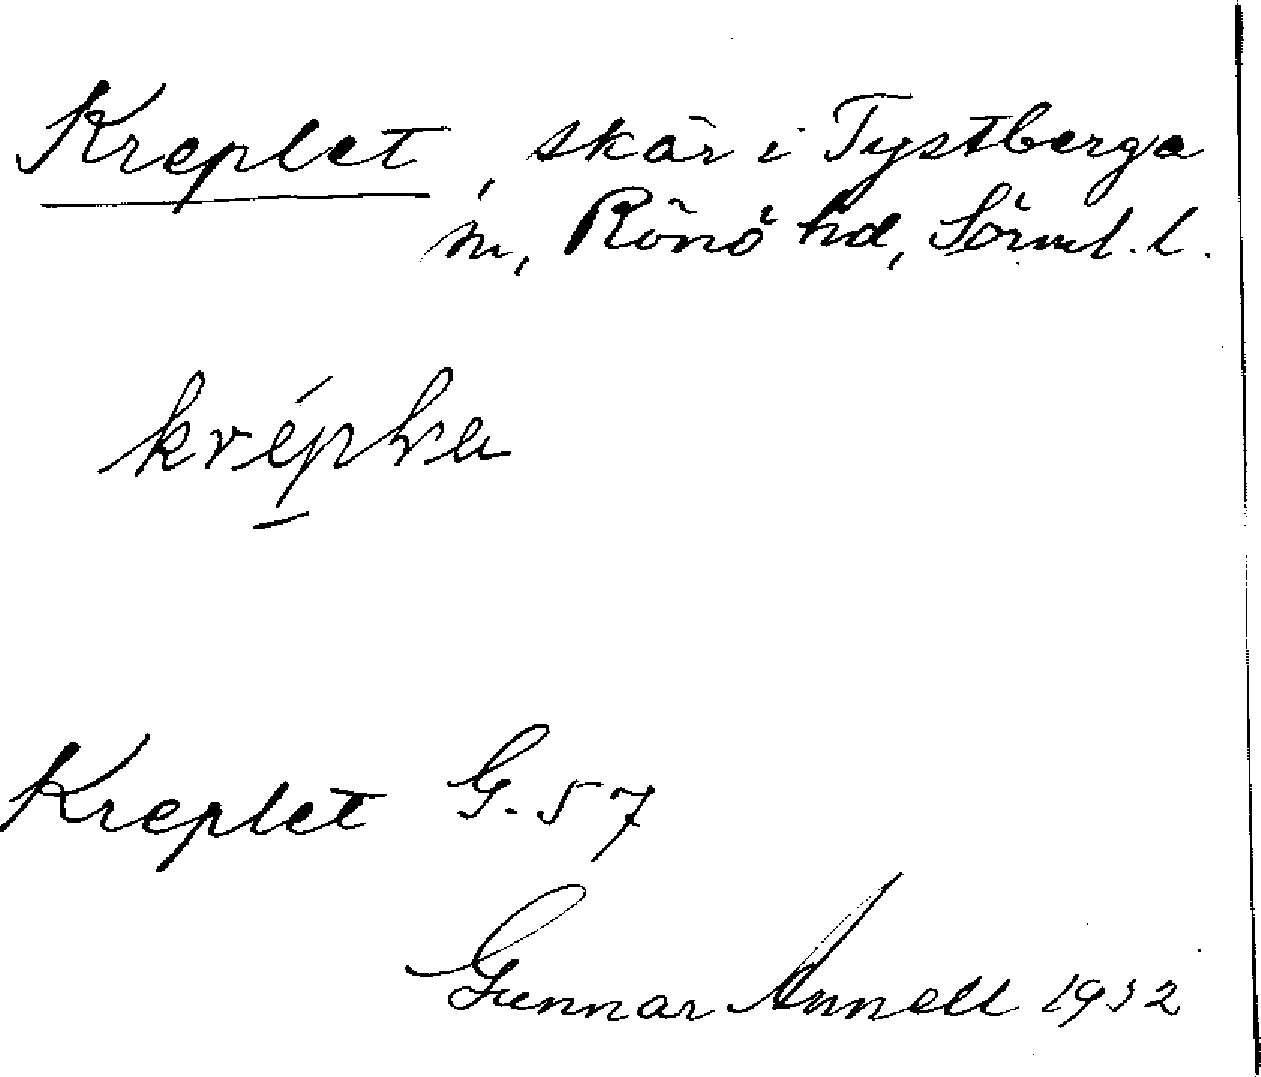 Kreplet, skär i Tystberga
sn, Rönö hd, Sörml. l.
Kreplet G. 57
Gunnar Annell 1932